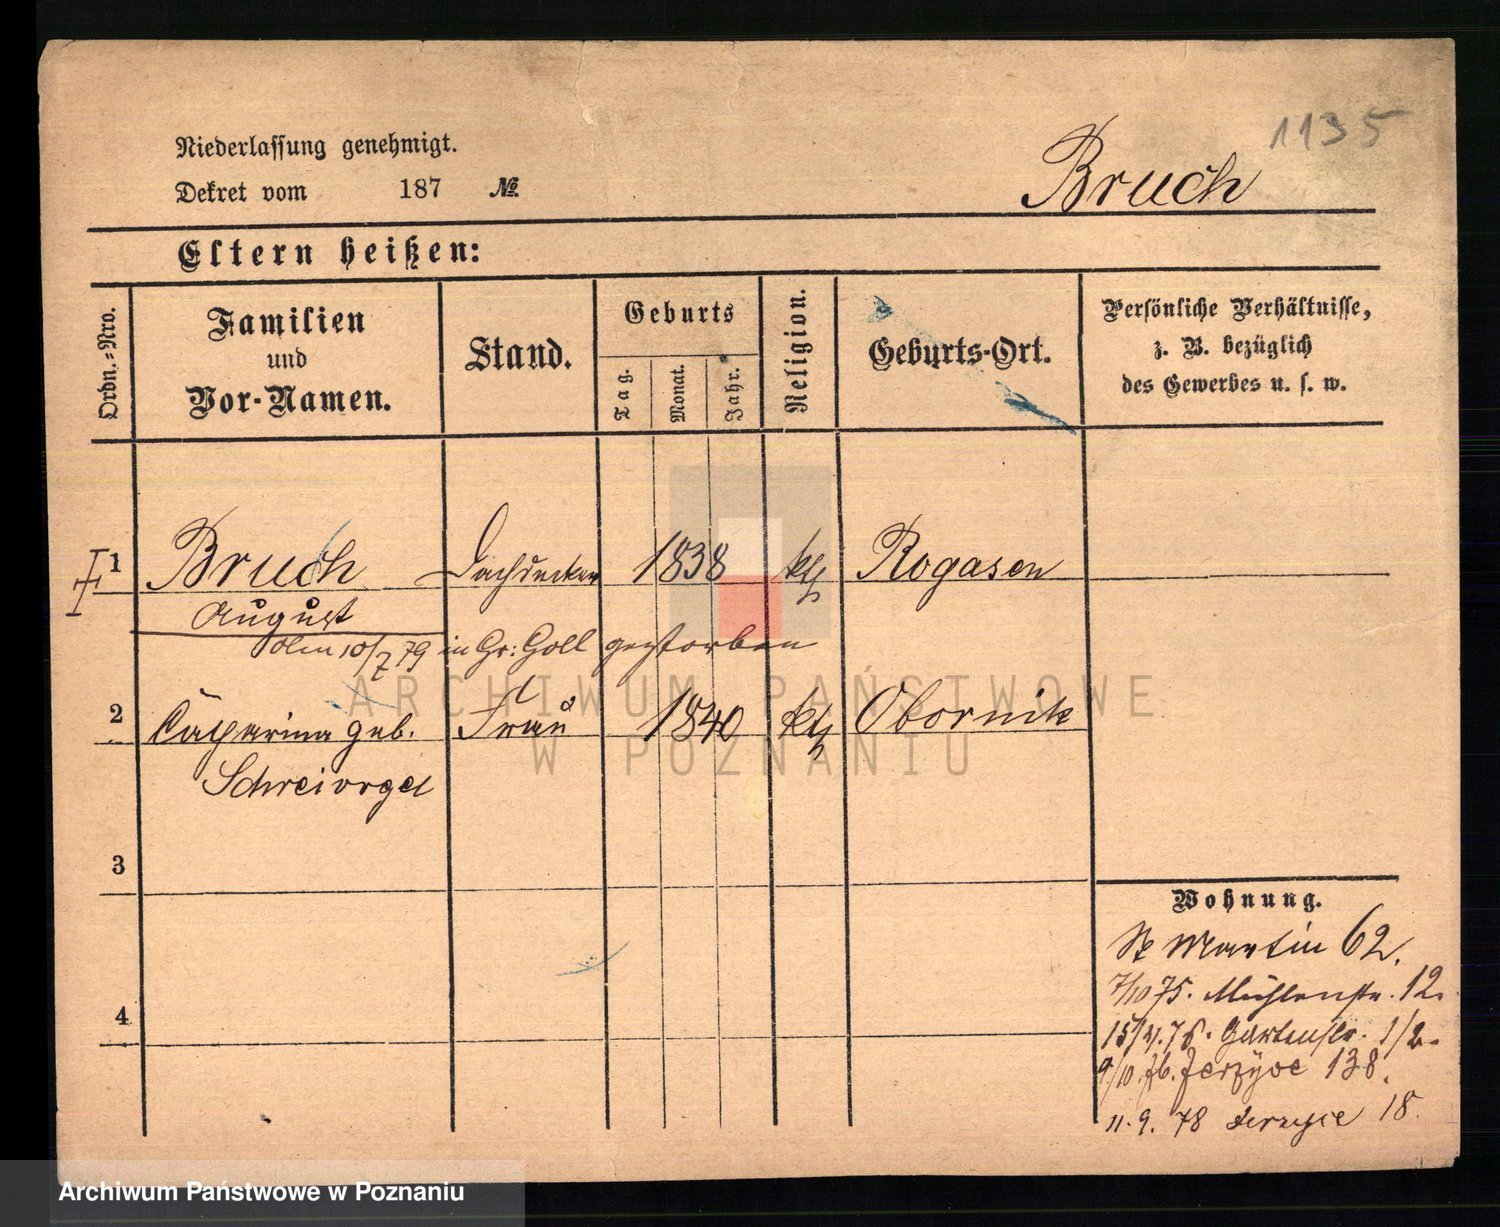 1135
Niederlassung genehmigt.
Dekret vom 187 №
Bruch
Eltern heißen:
Ordn.-Nro.
Familien
und
Vor-Namen.
Stand.
Geburts
Tag.
Monat.
Jahr.
Religion.
Geburts-Ort.
Persönliche Verhältnisse,
z. B. bezüglich
des Gewerbes u. s. w.
1 Bruch Dachdecker 1838 kth Rogasen
August
10/7 79 in Gr: Goll gestorben
2 Catharina geb. Frau 1840 kth Obornik
Schreivogel
3
4
Wohnung.
St Martin 62.
7/10 75. Mühlenstr. 12.
Gartenstr. 1/2.
9/10. 76. Jerzyce 138.
11. 9. 78 Jerzyce 18.
ARCHIWUM PAŃSTWOWE
W POZNANIU
Archiwum Państwowe w Poznaniu